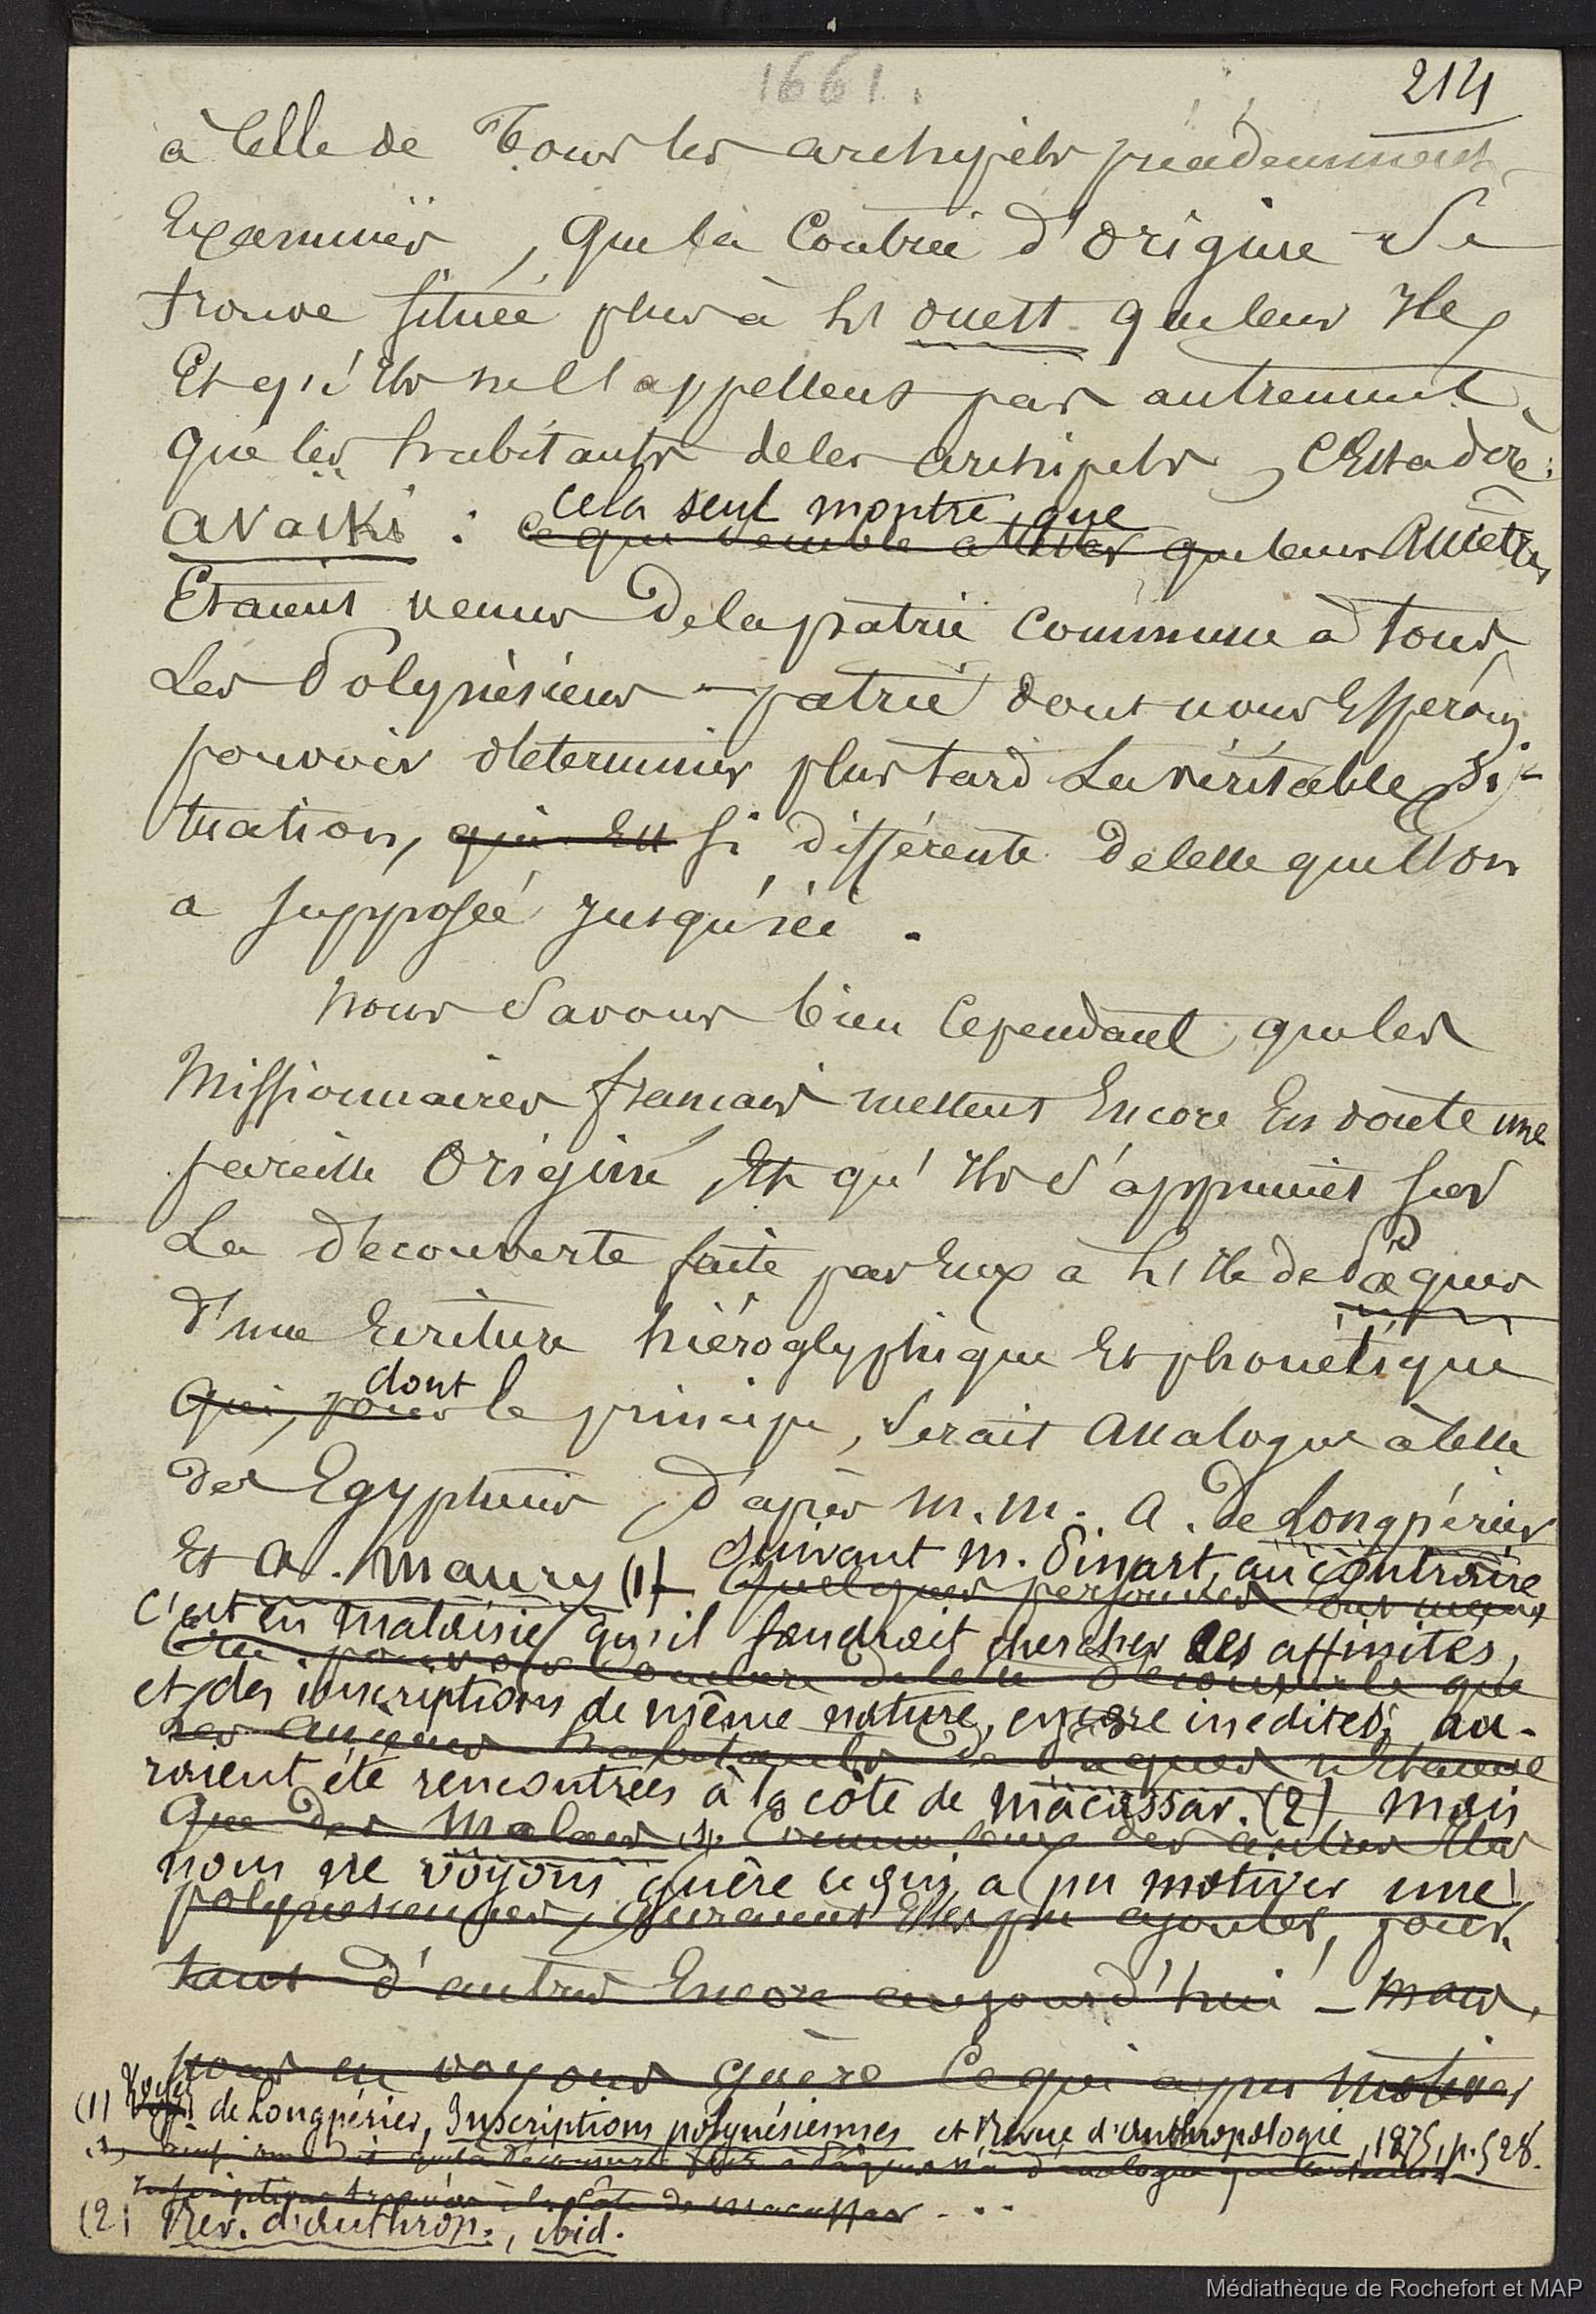 1661.
214
à celle de Tous les archipels précédemment
Examinés, que la Contrée d'origine se
trouve située plus à l'ouest que leur Ile,
Et qu'ils ne l'appellent pas autrement
que les habitants de ces archipels, C'Est a dire:
avaïki : cela seul montre que
ce qui semble attester que leurs ancêtres
Etaient venus de la patrie commune à tous
Les Polynésiens - patrie dont nous Espérons
pouvoir determiner plus tard La véritable si-
tuation, qui Est si différente de celle que l'on
a supposée jusqu'ici.
Nous Savons bien Cependant que les
Missionnaires français mettent Encore En doute une
pareille Origine, Et qu'ils s'appuient sur
La découverte faite par Eux à l'ile de Pâques
d'une Ecriture hiéroglyphique Et phonétique
dont
qui, pour le principe, Serait Analogue à celle
des Egyptiens, d'après M.M. A. de Longpérier
Et A. Maury (1) - Suivant M. Pinart, au contraire
Quelques personnes ont même
c'est en Malaisie qu'il faudrait chercher les affinités,
Cru pouvoir Conclure de cette découverte que
et des inscriptions de même nature, encore inédites, au-
Les anciens habitants de Pâques n'étaient
raient été rencontrées à la côte de Macassar. (2) Mais
que des Malais, Comme ceux des autres Iles
nous ne voyons guère ce qui a pu motiver une
polynésiennes, auraient Elles pu ajouter, pour-
tant d'autres Encore aujourd'hui - Mais,
nous ne voyons guère Ce qui a pu Motiver
(1) Voyez de Longpérier, Inscriptions polynésiennes et Revue d'Anthropologie, 1875, p. 528.
que la découverte faite à Pâques n'a d'analogue que
inscriptions trouvées à la Côte de Macassar...
(2) Rev. d'Anthrop., ibid.
Médiathèque de Rochefort et MAP